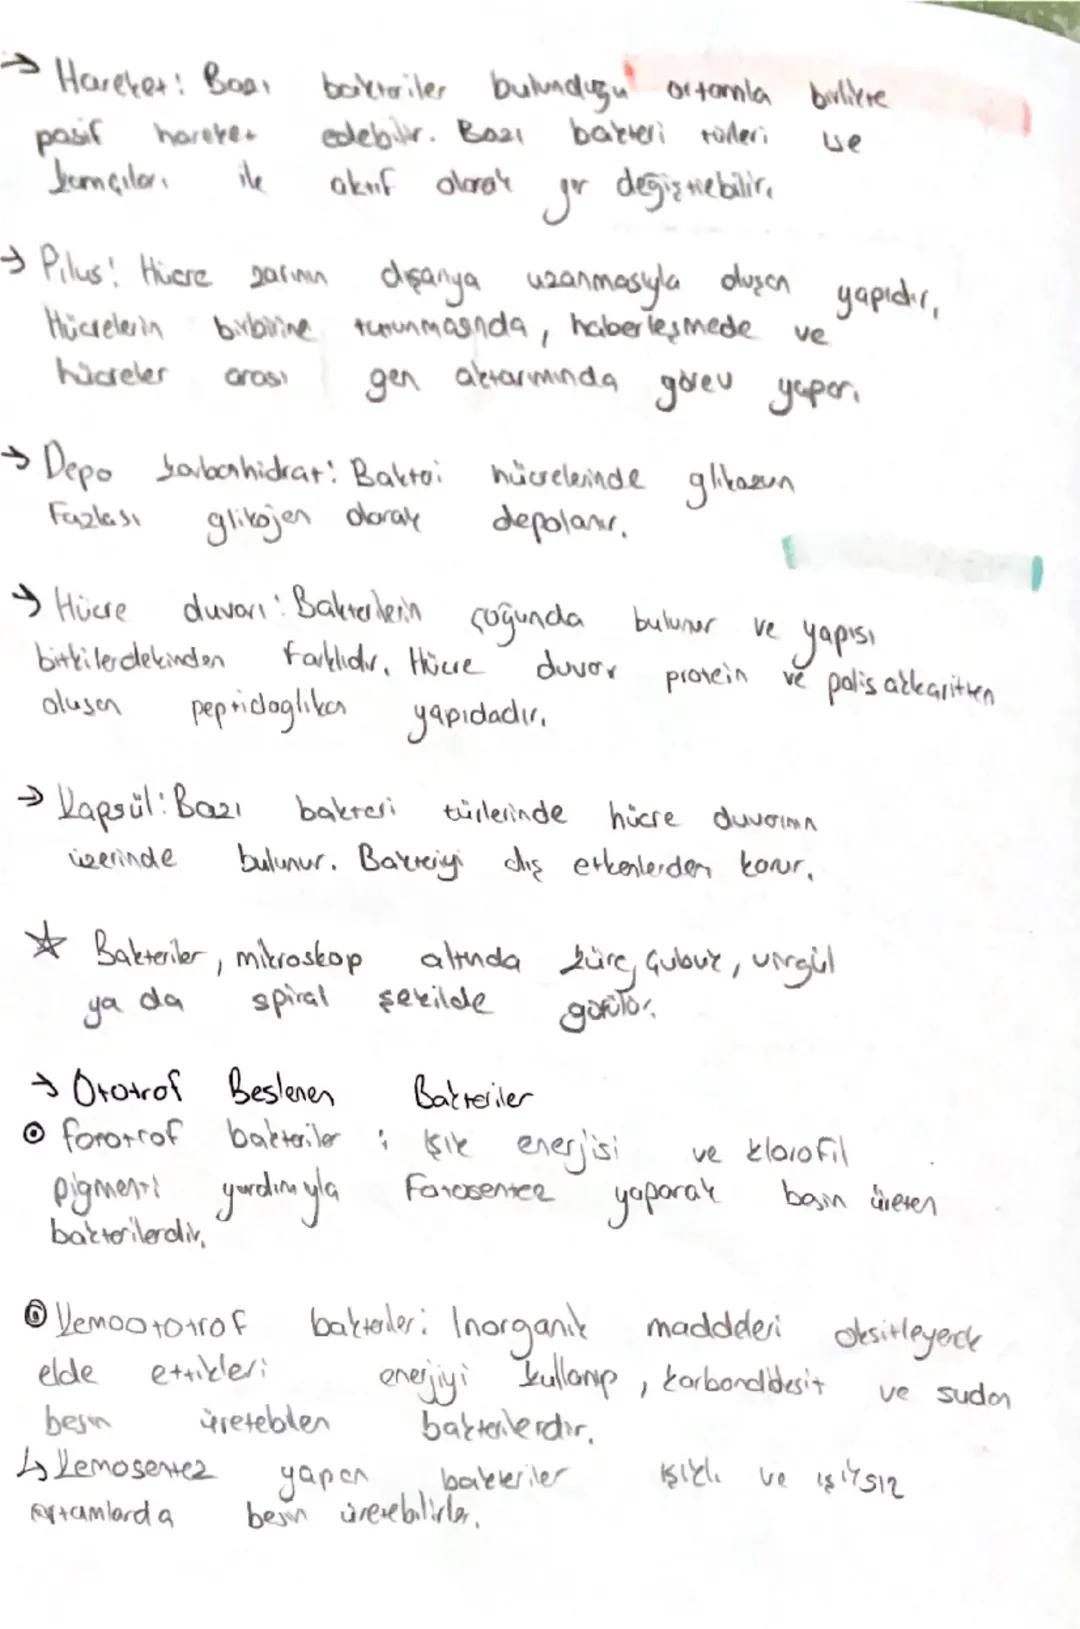 → Hareket: Bazı bakteriler bulunduğu ortamla birlikte
pasif hareket edebilir. Bazı bakteri türleri ise
kamçıları ile aktif olarak yer değiştirebilir.
→ Pilus: Hücre zarının dışarıya uzanmasıyla oluşan yapıdır.
Hücrelerin birbirine tutunmasında, haberleşmede ve
hücreler arası gen aktarımında görev yapar.
→ Depo karbonhidrat: Bakteri hücrelerinde glikozun
fazlası glikojen olarak depolanır.
→ Hücre duvarı: Bakterilerin çoğunda bulunur ve yapısı
bitkilerdekinden farklıdır. Hücre duvarı protein ve polisakkaritten
oluşan peptidoglikan yapıdadır.
→ Kapsül: Bazı bakteri türlerinde hücre duvarının
üzerinde bulunur. Bakteriyi dış etkenlerden korur.
☆ Bakteriler, mikroskop altında küre, çubuk, virgül
ya da spiral şekilde görülür.
→ Ototrof Beslenen Bakteriler
⊙ fototrof bakteriler: Işık enerjisi ve klorofil
pigmenti yardımıyla Fotosentez yaparak besin üreten
bakterilerdir.
⊙ Kemoototrof bakteriler: İnorganik maddeleri oksitleyerek
elde ettikleri enerjiyi kullanıp, karbondioksit ve sudan
besin üretebilen bakterilerdir.
↳ Kemosentez yapan bakteriler ışıklı ve ışıksız
ortamlarda besin üretebilirler.